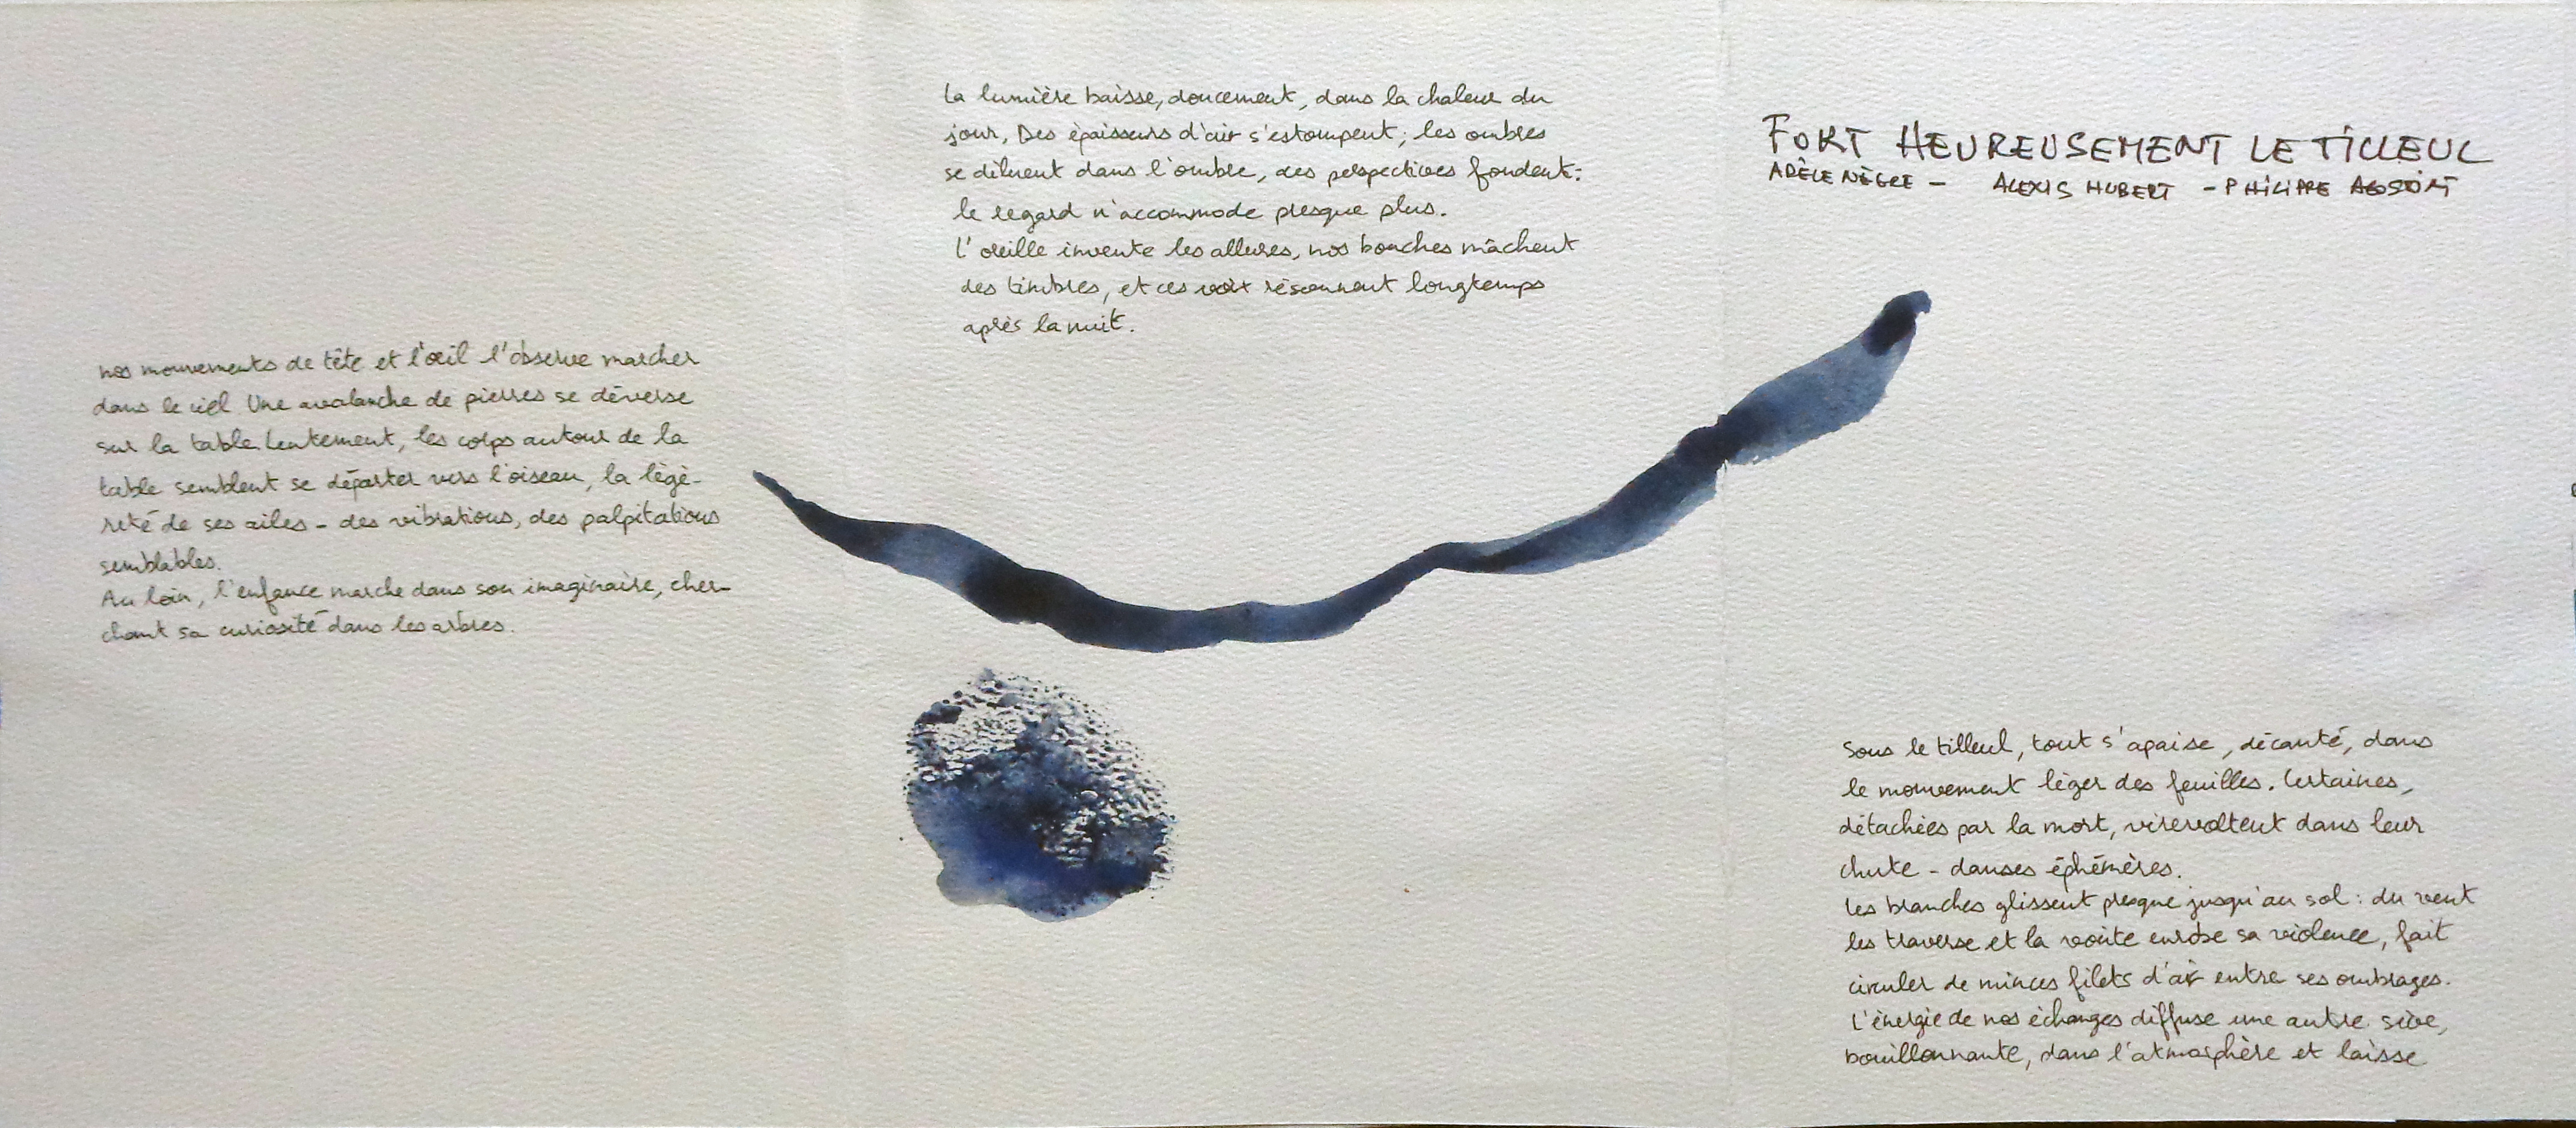 nos mouvements de tête et l'œil l'observe marcher
dans le ciel. Une avalanche de pierres se déverse
sur la table. Lentement, les corps autour de la
table semblent se déporter vers l'oiseau, la légè-
reté de ses ailes - des vibrations, des palpitations
semblables.
Au loin, l'enfance marche dans son imaginaire, cher-
chant sa curiosité dans les arbres.
La lumière baisse, doucement, dans la chaleur du
jour. Des épaisseurs d'air s'estompent ; les ombres
se diluent dans l'ombre, des perspectives fondent :
le regard n'accommode presque plus.
L'oreille invente les allures, nos bouches mâchent
des timbres, et ces voix résonnent longtemps
après la nuit.
FORT HEUREUSEMENT LE TILLEUL
ADÈLE NÈGRE - ALEXIS HUBERT - PHILIPPE AGOSTINI
Sous le tilleul, tout s'apaise, décanté, dans
le mouvement léger des feuilles. Certaines,
détachées par la mort, virevoltent dans leur
chute - danses éphémères.
Les branches glissent presque jusqu'au sol : du vent
les traverse et la voûte enrobe sa violence, fait
circuler de minces filets d'air entre ses ombrages.
L'énergie de nos échanges diffuse une autre sève,
bouillonnante, dans l'atmosphère et laisse